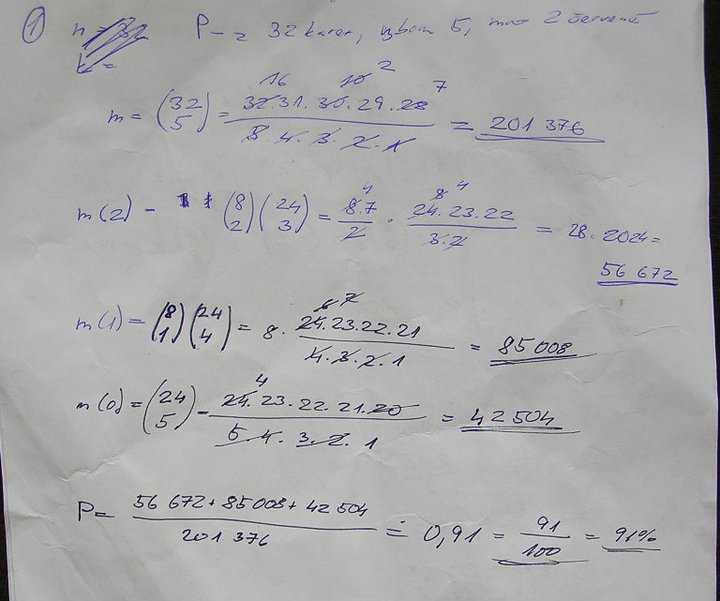 ① P- 32 karet, vyberu 5, max 2 červené
m = (32 5) = 32 31 . 30 . 29 . 28 / 5 . 4 . 3 . 2 . 1 = 201 376
16 10 2 7
m(2) - (8 2) (24 3) = 8.7 / 2 . 24 . 23 . 22 / 3 . 2 = 28 . 2024 =
4 8 4
56 672
m(1) = (8 1) (24 4) = 8 . 24 . 23 . 22 . 21 / 4 . 3 . 2 . 1 = 85 008
m(0) = (24 5) - 24 . 23 . 22 . 21 . 20 / 5 . 4 . 3 . 2 . 1 = 42 504
4
P = 56 672 + 85 008 + 42 504 / 201 376 ≐ 0,91 = 91 / 100 = 91%